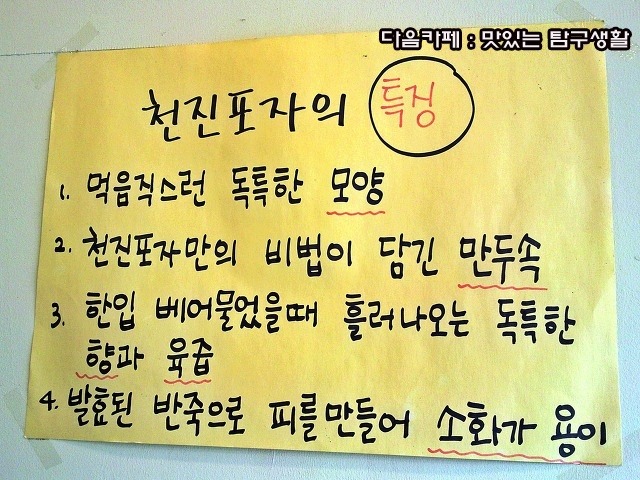 다음카페 : 맛있는 탐구생활
천진포자의 특징
1. 먹음직스런 독특한 모양
2. 천진포자만의 비법이 담긴 만두속
3. 한입 베어물었을때 흘러나오는 독특한
향과 육즙
4. 발효된 반죽으로 피를만들어 소화가 용이